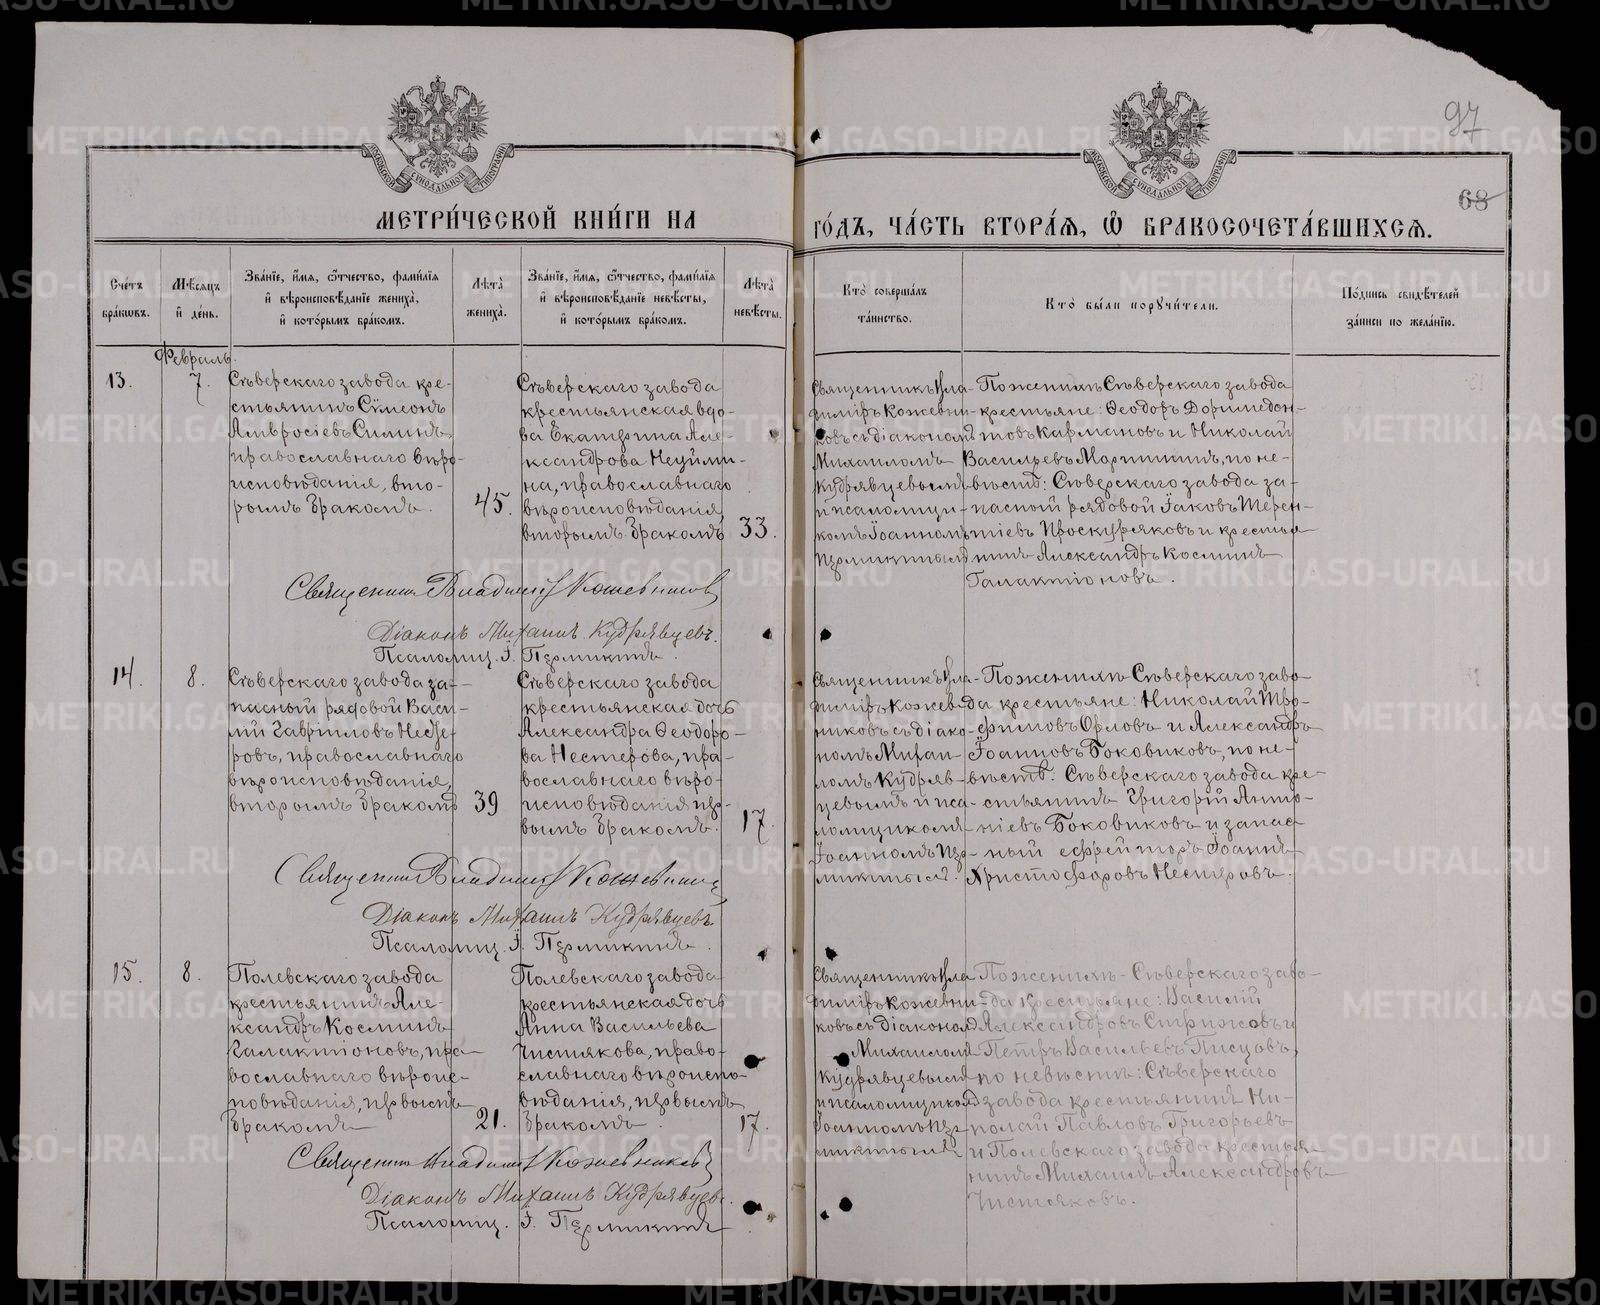 97
68
МОСКОВСКОЙ СѴНОДАЛЬНОЙ ТИПОГРАФІИ
МОСКОВСКОЙ СѴНОДАЛЬНОЙ ТИПОГРАФІИ
МЕТРИ́ЧЕСКОЙ КНИ́ГИ НА
ГО́ДЪ, ЧА́СТЬ ВТОРА́Ѧ, Ѽ БРАКОСОЧЕТА́ВШИХСѦ.
Сче́тъ бра́кѡвъ.
Мѣ́сѧцъ и҆ де́нь.
Зва́нїе, и҆́мѧ, ѻ҆́тчество, фами́лїѧ и҆ вѣроисповѣ́данїе жениха̀, и҆ кото́рымъ бра́комъ.
Лѣ́та̀ жениха̀.
Зва́нїе, и҆́мѧ, ѻ҆́тчество, фами́лїѧ и҆ вѣроисповѣ́данїе невѣ́сты, и҆ кото́рымъ бра́комъ.
Лѣ́та̀ невѣ́сты.
Кто̀ соверша́лъ та́инство.
Кто̀ бы́ли порꙋчи́тели.
По́дпись свидѣ́телей за́писи по жела́нїю.
Февраль.
13.
7.
Сѣверскаго завода кре-
стьянинъ Сѵмеонъ
Амвросіевъ Силинъ,
православнаго вѣро-
исповѣданія, вто-
рымъ бракомъ.
45.
Сѣверскаго завода
крестьянская вдо-
ва Екатерина Але-
ксандрова Неуйми-
на, православнаго
вѣроисповѣданія,
вторымъ бракомъ
33.
Священникъ Вла-
диміръ Кожевни-
ковъ съ діакономъ
Михаиломъ
Кудрявцевымъ
и псаломщи-
комъ Іоанномъ
Пермикинымъ
По женихѣ Сѣверскаго завода
крестьяне: Ѳеодоръ Доримедон-
товъ Кармановъ и Николай
Васильевъ Моршининъ, по не-
вѣстѣ: Сѣверскаго завода за-
пасный рядовой Іаковъ Терен-
тіевъ Проскуряковъ и крестья
нинъ Александръ Косминъ
Галактіоновъ.
Священникъ Владимір Кожевников
Діаконъ Михаилъ Кудрявцевъ.
Псаломщ. І. Пермикинъ.
14.
8.
Сѣверскаго завода за-
пасный рядовой Васи-
лій Гавріиловъ Несте-
ровъ, православнаго
вѣроисповѣданія,
вторымъ бракомъ
39
Сѣверскаго завода
крестьянская дочь
Александра Ѳеодоро-
ва Нестерова, пра-
вославнаго вѣро-
исповѣданія пер-
вымъ бракомъ.
17.
Священникъ Вла-
диміръ Кожев-
никовъ съ діако-
номъ Михаи-
ломъ Кудряв-
цевымъ и пса-
ломщикомъ
Іоанномъ Пер-
микинымъ.
По женихѣ Сѣверскаго заво-
да крестьяне: Николай Тро-
фимовъ Орловъ и Александръ
Іоанновъ Боковиковъ, по не-
вѣстѣ: Сѣверскаго завода кре-
стьянинъ Григорій Анто-
ніевъ Боковиковъ и запас
ный ефрейторъ Іоаннъ
Христофоровъ Нестеровъ.
Священникъ Владимір Кожевников
Діаконъ Михаилъ Кудрявцевъ
Псаломщ. І. Пермикинъ.
15.
8.
Полевскаго завода
крестьянинъ Але-
ксандръ Косминъ
Галактіоновъ, пра-
вославнаго вѣроис-
повѣданія, первымъ
бракомъ
21.
Полевскаго завода
крестьянская дочь
Анна Васильева
Чистякова, право-
славнаго вѣроиспо-
вѣданія, первымъ
бракомъ.
17.
Священникъ Вла
диміръ Кожевни-
ковъ съ діакономъ
Михаиломъ
Кудрявцевымъ
и псаломщикомъ
Іоанномъ Пер-
микинымъ
По женихѣ - Сѣверскаго заво-
да крестьяне: Василій
Александровъ Стрижовъ и
Петръ Васильевъ Писцовъ,
по невѣстѣ: Сѣверскаго
завода крестьянинъ Ни-
колай Павловъ Григорьевъ
и Полевскаго завода крестья-
нинъ Михаилъ Александровъ
Чистяковъ.
Священникъ Владимір Кожевников
Діаконъ Михаилъ Кудрявцевъ.
Псаломщ. І. Пермикинъ
METRIKI.GASO-URAL.RU